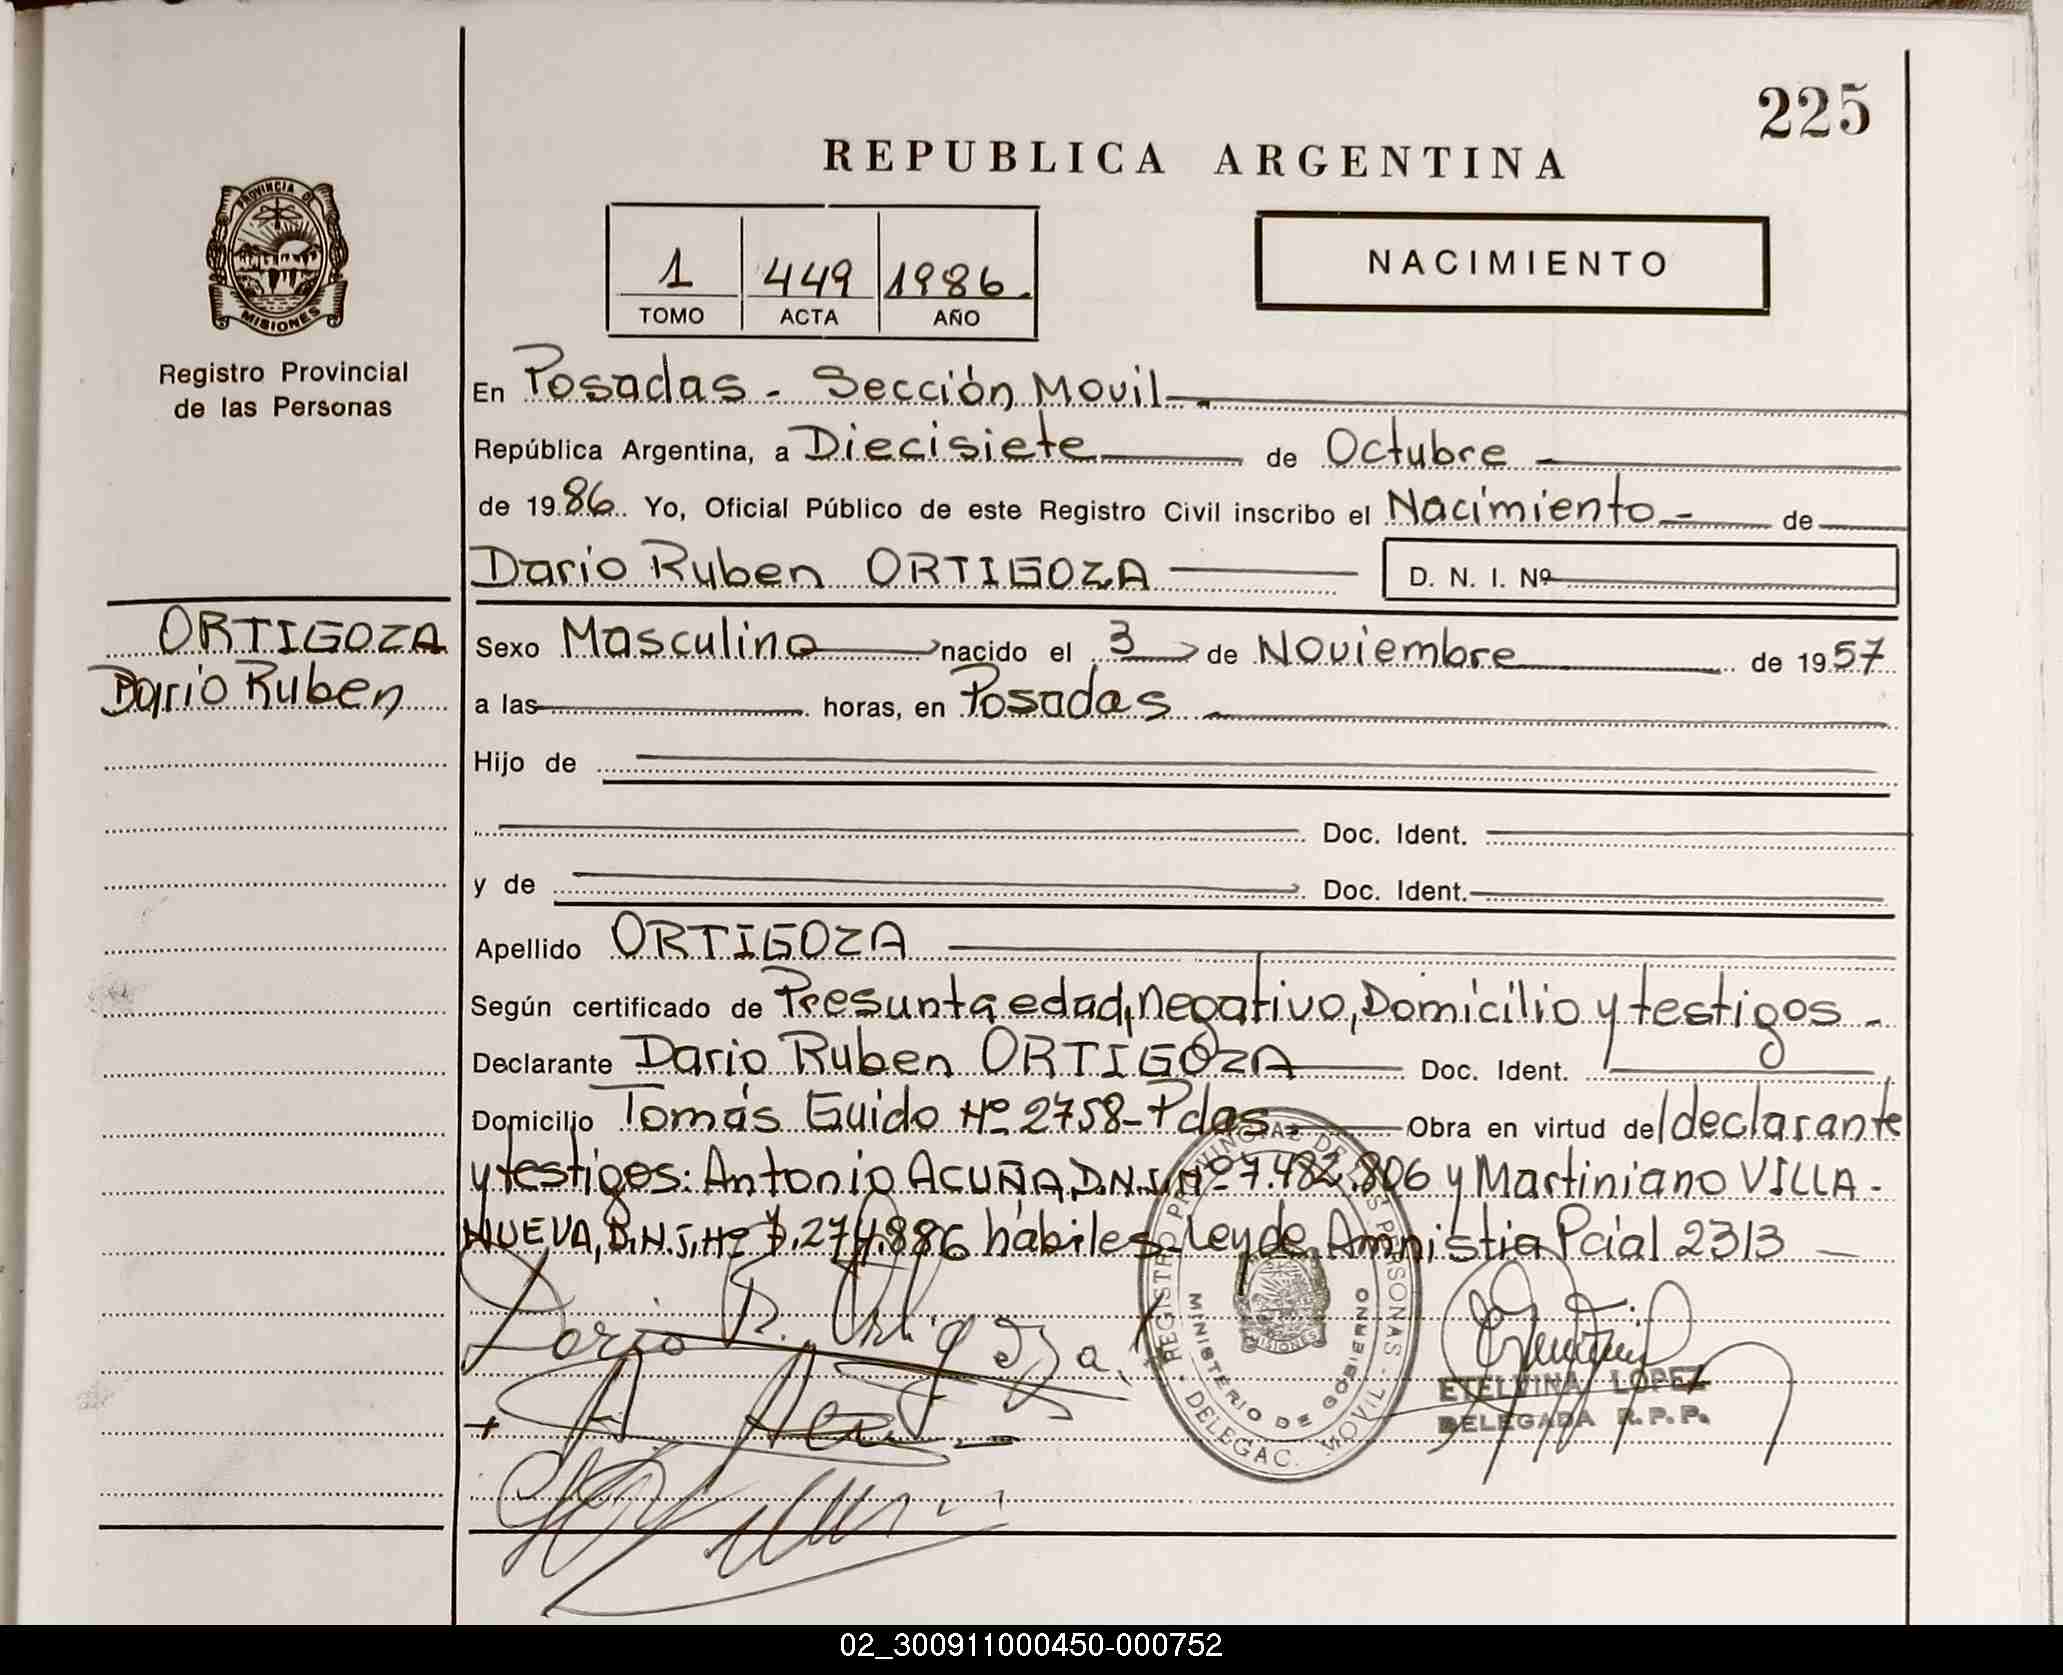 225
REPUBLICA ARGENTINA
PROVINCIA DE
MISIONES
Registro Provincial
de las Personas
1 449 1986.
TOMO ACTA AÑO
NACIMIENTO
En Posadas - Sección Movil
República Argentina, a Diecisiete de Octubre
de 1986. Yo, Oficial Público de este Registro Civil inscribo el Nacimiento de
Dario Ruben ORTIGOZA D. N. I. Nº
ORTIGOZA
Dario Ruben
Sexo Masculino nacido el 3 de Noviembre de 1957
a las horas, en Posadas
Hijo de
Doc. Ident.
y de Doc. Ident.
Apellido ORTIGOZA
Según certificado de Presunta edad, negativo, Domicilio y testigos -
Declarante Dario Ruben ORTIGOZA Doc. Ident.
Domicilio Tomás Guido Nº 2758-Pdas Obra en virtud del declarante
y testigos: Antonio ACUÑA, D.N.I. Nº 7.482.806 y Martiniano VILLA-
NUEVA, D.N.I. Nº .274.886 hábiles - Ley de Amnistia Pcial 2313
Dario R. Ortigoza
REGISTRO PROVINCIAL DE LAS PERSONAS - DELEGAC. MOVIL -
MINISTERIO DE GOBIERNO
MISIONES
ETELVINA LOPEZ
DELEGADA R.P.P.
02_300911000450-000752